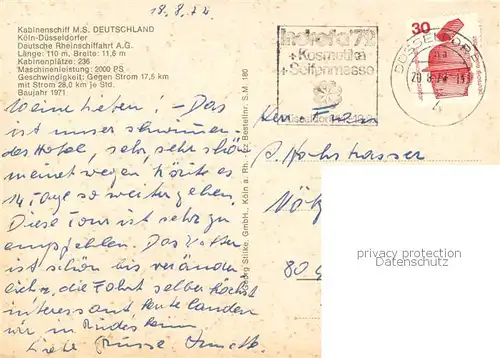 18.8.72
Kabinenschiff M.S. DEUTSCHLAND
Köln-Düsseldorfer
Deutsche Rheinschiffahrt A.G.
Länge: 110 m. Breite: 11,6 m
Kabinenplätze: 236
Maschinenleistung: 2000 PS
Geschwindigkeit: Gegen Strom 17,5 km
mit Strom 28,0 km je Std.
Baujahr 1971
Meine Lieben! - Das
ist unser schwimmen-
des Hotel, sehr, sehr schön
meinetwegen könnte es
14 Tage so weitergehen.
Diese Tour ist sehr zu
empfehlen. Das Wetter
ist schön bis verän
lich, die Fahrt selber höchst
interessant, heute landen
wir in
Liebe Grüsse
Georg Stilke, GmbH., Köln a. Rh. - Bestellnr. S.M. 180
'72
+Kosmetika
+Seifenmesse
30
DÜSSELDORF
20.8.72
privacy protection
Datenschutz